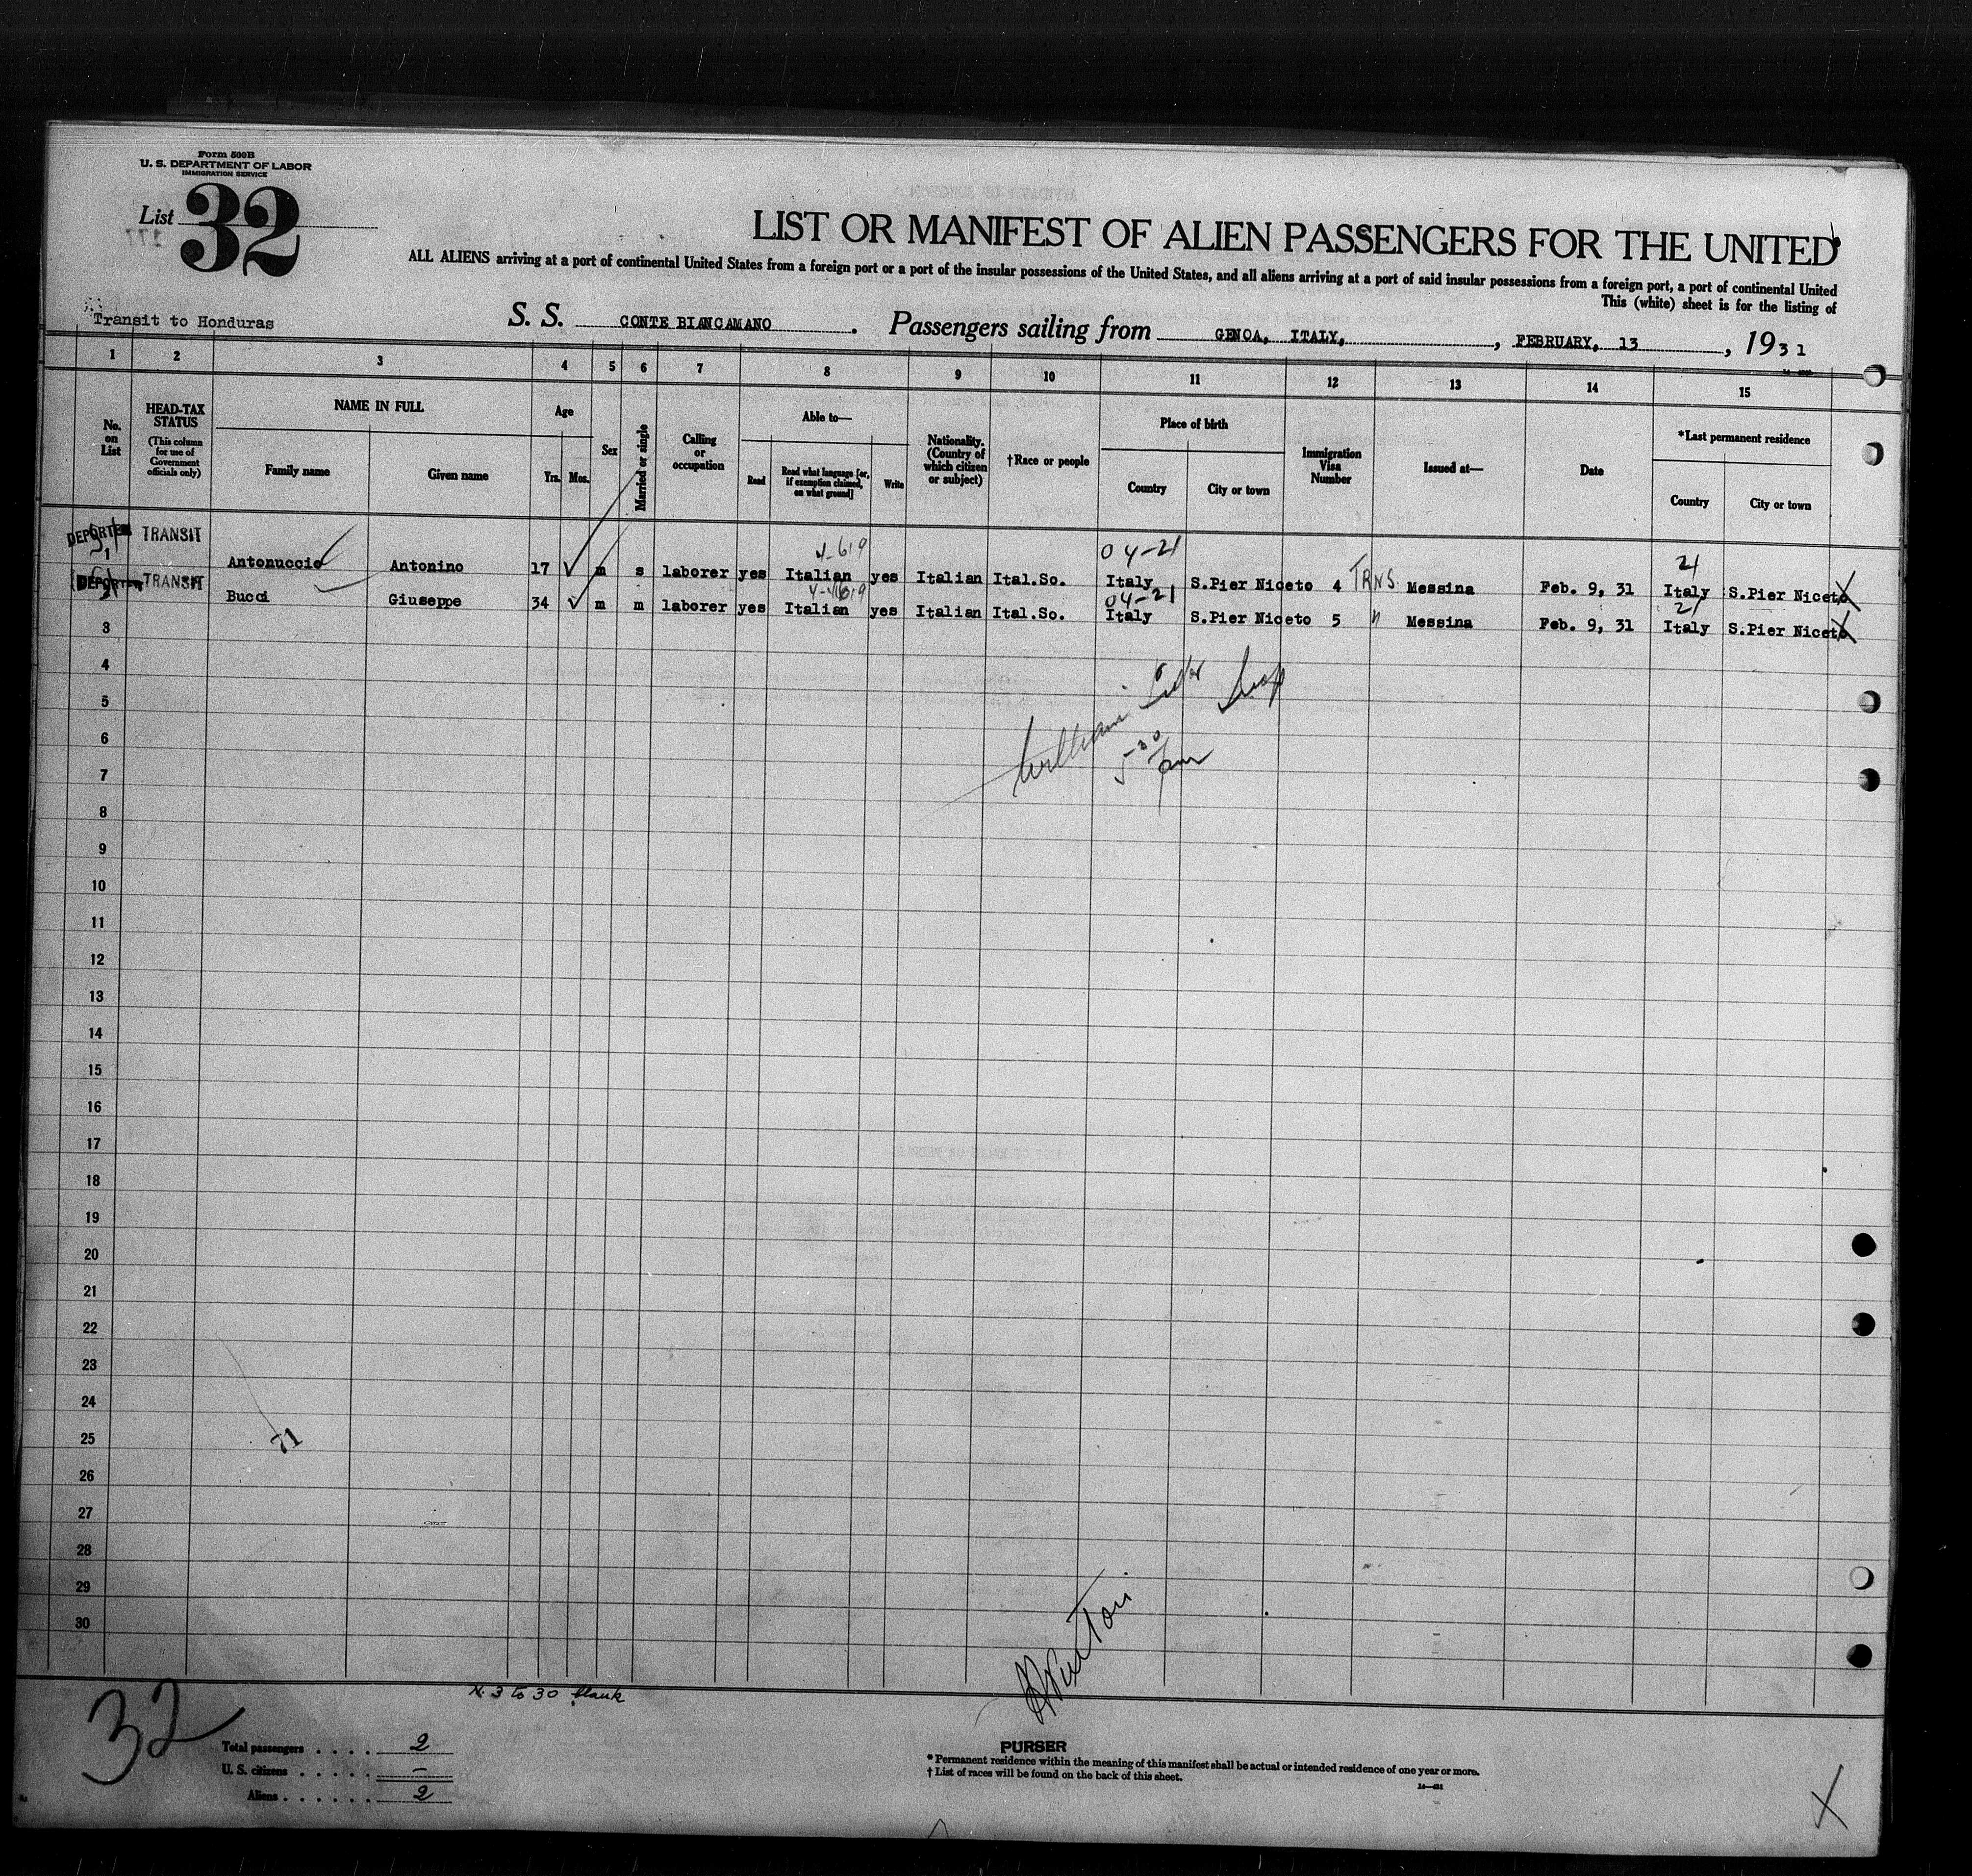 Form 500B
U. S. DEPARTMENT OF LABOR
IMMIGRATION SERVICE
List 32
LIST OR MANIFEST OF ALIEN PASSENGERS FOR THE UNITED
ALL ALIENS arriving at a port of continental United States from a foreign port or a port of the insular possessions of the United States, and all aliens arriving at a port of said insular possessions from a foreign port, a port of continental United
This (white) sheet is for the listing of
Transit to Honduras
S. S. CONTE BIANCAMANO . Passengers sailing from GENOA, ITALY, , FEBRUARY, 13 , 1931
1 2 3 4 5 6 7 8 9 10 11 12 13 14 15
No. on List
HEAD-TAX STATUS
(This column for use of Government officials only)
NAME IN FULL
Family name Given name
Age
Yrs. Mos.
Sex
Married or single
Calling or occupation
Able to—
Read
Read what language [or, if exemption claimed, on what ground]
Write
Nationality. (Country of which citizen or subject)
†Race or people
Place of birth
Country City or town
Immigration Visa Number
Issued at—
Date
*Last permanent residence
Country City or town
DEPORTED TRANSIT
4-619 04-21 21
1 Antonuccio Antonino 17 m s laborer yes Italian yes Italian Ital.So. Italy S.Pier Niceto 4 TRNS Messina Feb. 9, 31 Italy S.Pier Niceto
DEPORTED TRANSIT
04-21 21
Bucci Giuseppe 34 m m laborer yes Italian yes Italian Ital.So. Italy S.Pier Niceto 5 " Messina Feb. 9, 31 Italy S.Pier Niceto
3
4
5
William
6
5-30
7
pm
8
9
10
11
12
13
14
15
16
17
18
19
20
21
22
23
24
25
71
26
27
28
29
30
32
N. 3 to 30 blank
Total passengers . . . . 2
U. S. citizens . . . . . –
Aliens . . . . . . 2
PURSER
* Permanent residence within the meaning of this manifest shall be actual or intended residence of one year or more.
† List of races will be found on the back of this sheet.
X